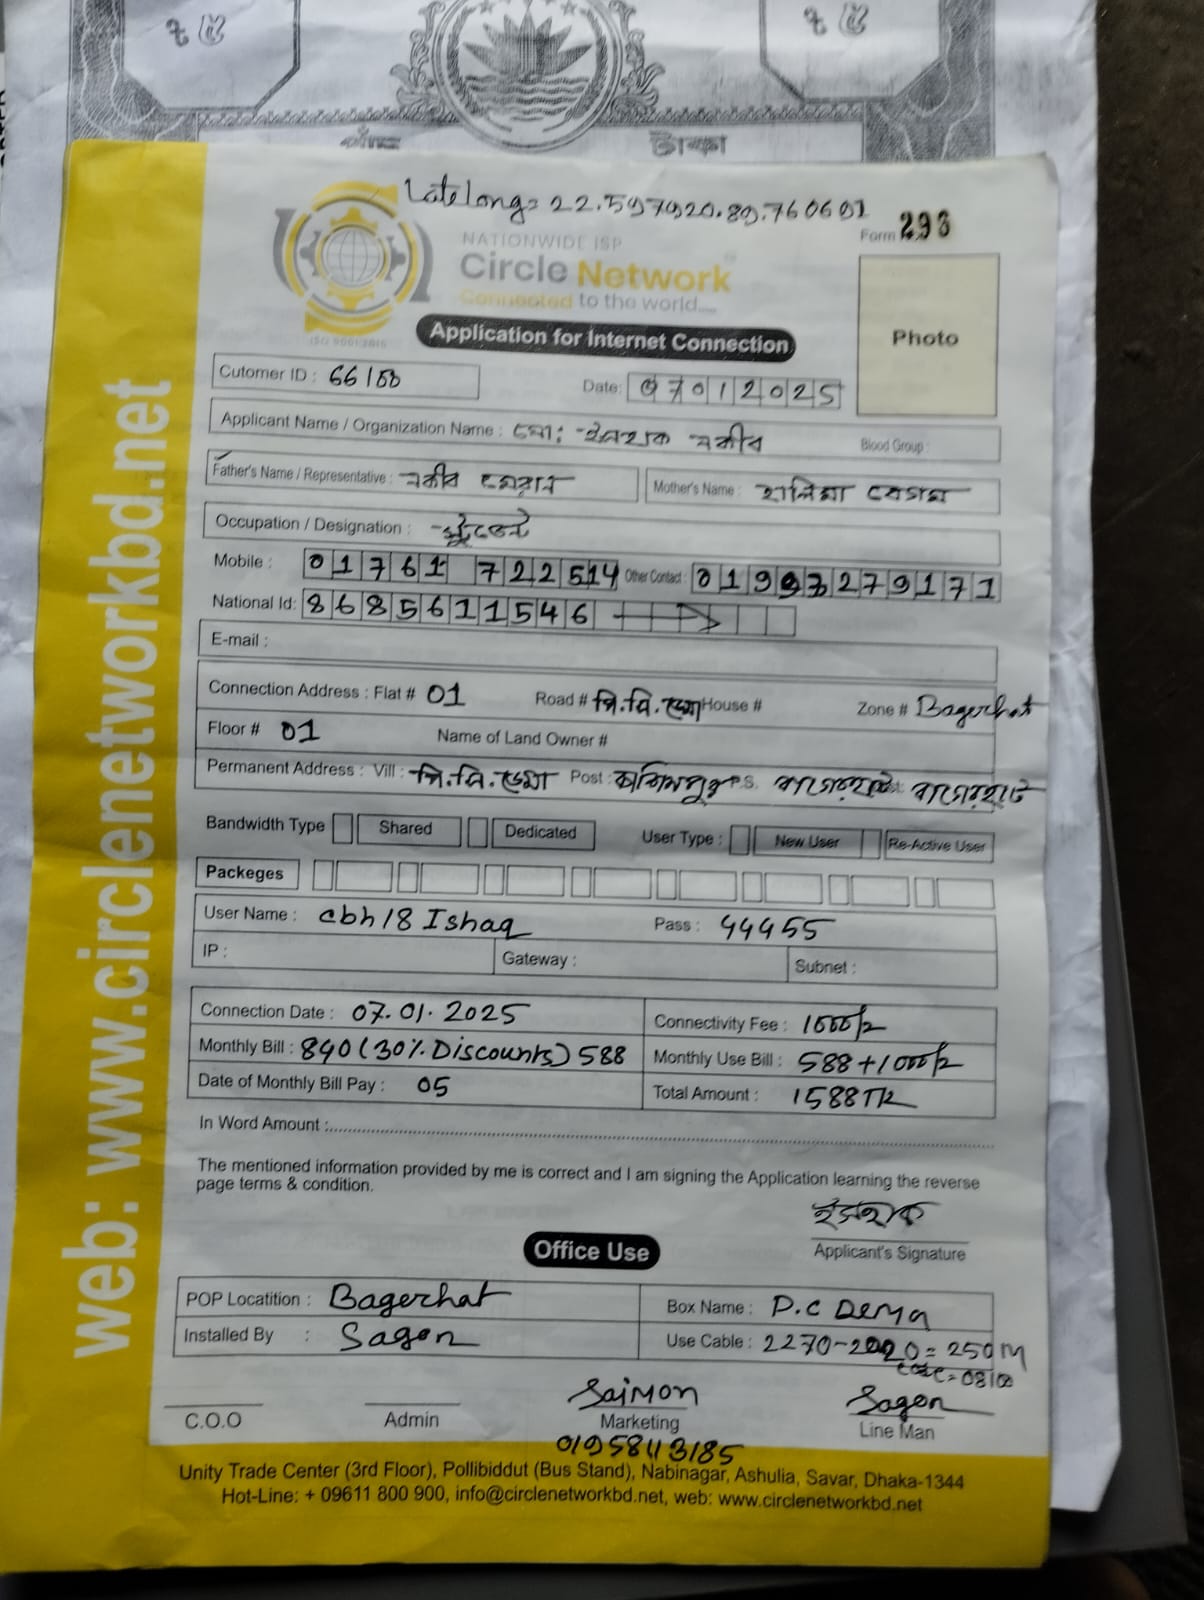 ২৫
২৫
পাঁচ টাকা
Late long= 22.597920.89.760601
Form 293
NATIONWIDE ISP
Circle Network
Connected to the world....
ISO 9001:2015
Photo
Application for Internet Connection
Cutomer ID : 66188
Date: 07012025
Applicant Name / Organization Name : মো: ইসহাক নকীব
Blood Group :
Father's Name / Representative : নকীব সেহরাব
Mother's Name : হালিমা বেগম
Occupation / Designation : স্টুডেন্ট
Mobile : 01761 722514 Other Contact : 01993279171
National Id: 8685611546
E-mail :
Connection Address : Flat # 01 Road # পি.সি.ডেমা House # Zone # Bagerhat
Floor # 01 Name of Land Owner #
Permanent Address : Vill : পি.সি.ডেমা Post : কাশিমপুর P.S. বাগেরহাট বাগেরহাট
Bandwidth Type Shared Dedicated User Type : New User Re-Active User
Packeges
User Name : cbh18 Ishaq Pass : 44455
IP : Gateway : Subnet :
Connection Date : 07.01.2025 Connectivity Fee : 1000/=
Monthly Bill : 840 (30% Discounts) 588 Monthly Use Bill : 588+1000/=
Date of Monthly Bill Pay : 05 Total Amount : 1588TK
In Word Amount :
The mentioned information provided by me is correct and I am signing the Application learning the reverse
page terms & condition.
ইসহাক
Applicant's Signature
Office Use
POP Locatition : Bagerhat Box Name : P.C Dema
Installed By : Sagor Use Cable : 2270-2020= 250M
C.O.O Admin Saimon Marketing Sagor Line Man
01958113185
Unity Trade Center (3rd Floor), Pollibiddut (Bus Stand), Nabinagar, Ashulia, Savar, Dhaka-1344
Hot-Line: + 09611 800 900, info@circlenetworkbd.net, web: www.circlenetworkbd.net
web: www.circlenetworkbd.net